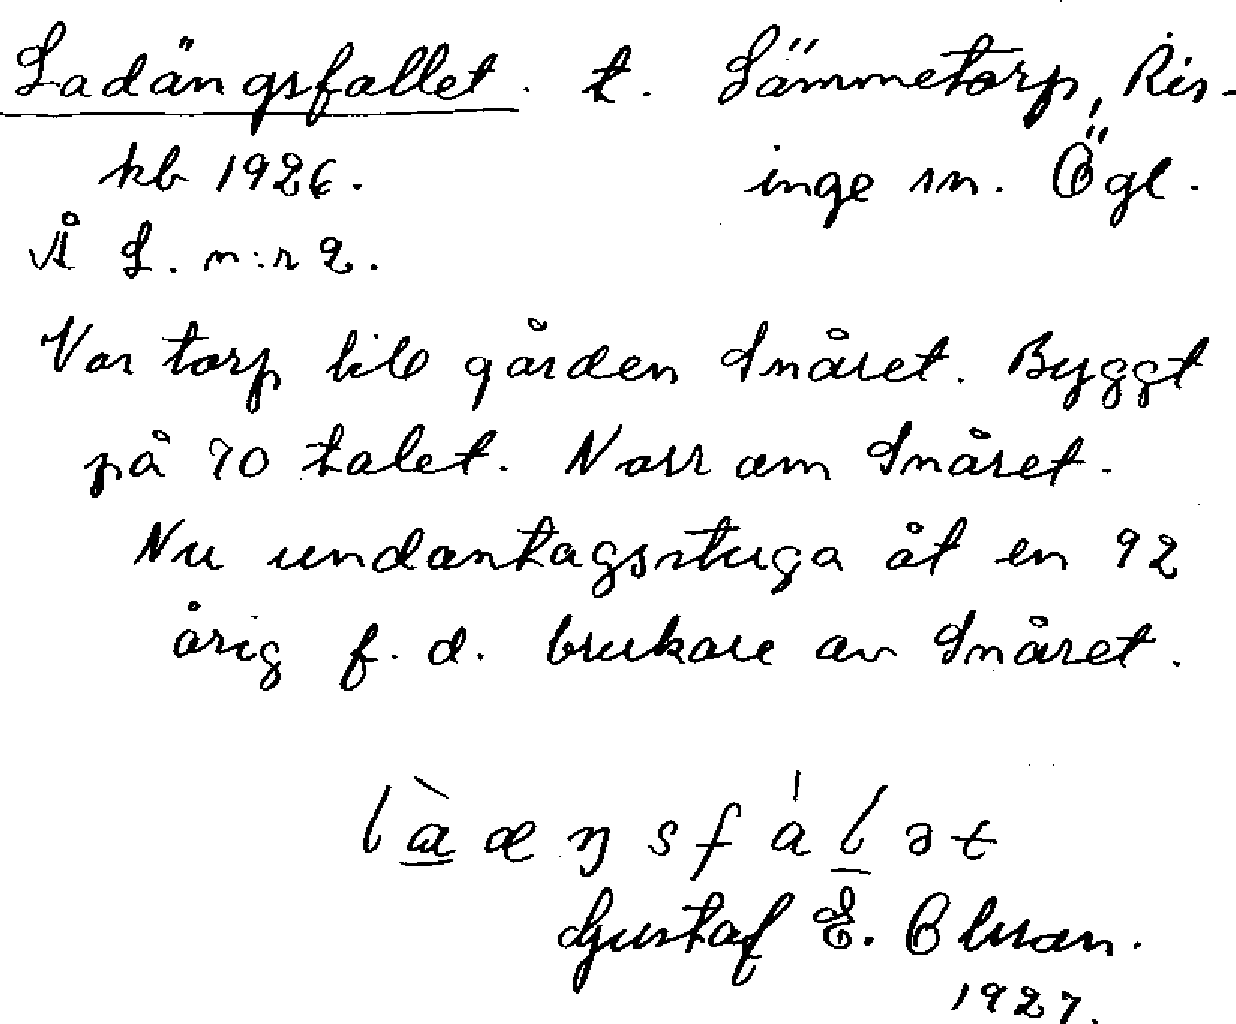 Ladängsfallet. t. Sämmetorp, Ris-
kb 1926. inge sn. Ögl.
Å L. n:r 2.
Var torp till gården Snåret. Byggt
på 70 talet. Norr om Snåret.
Nu undantagsstuga åt en 92
årig f.d. brukare av Snåret.
Gustaf E. Olson.
1927.